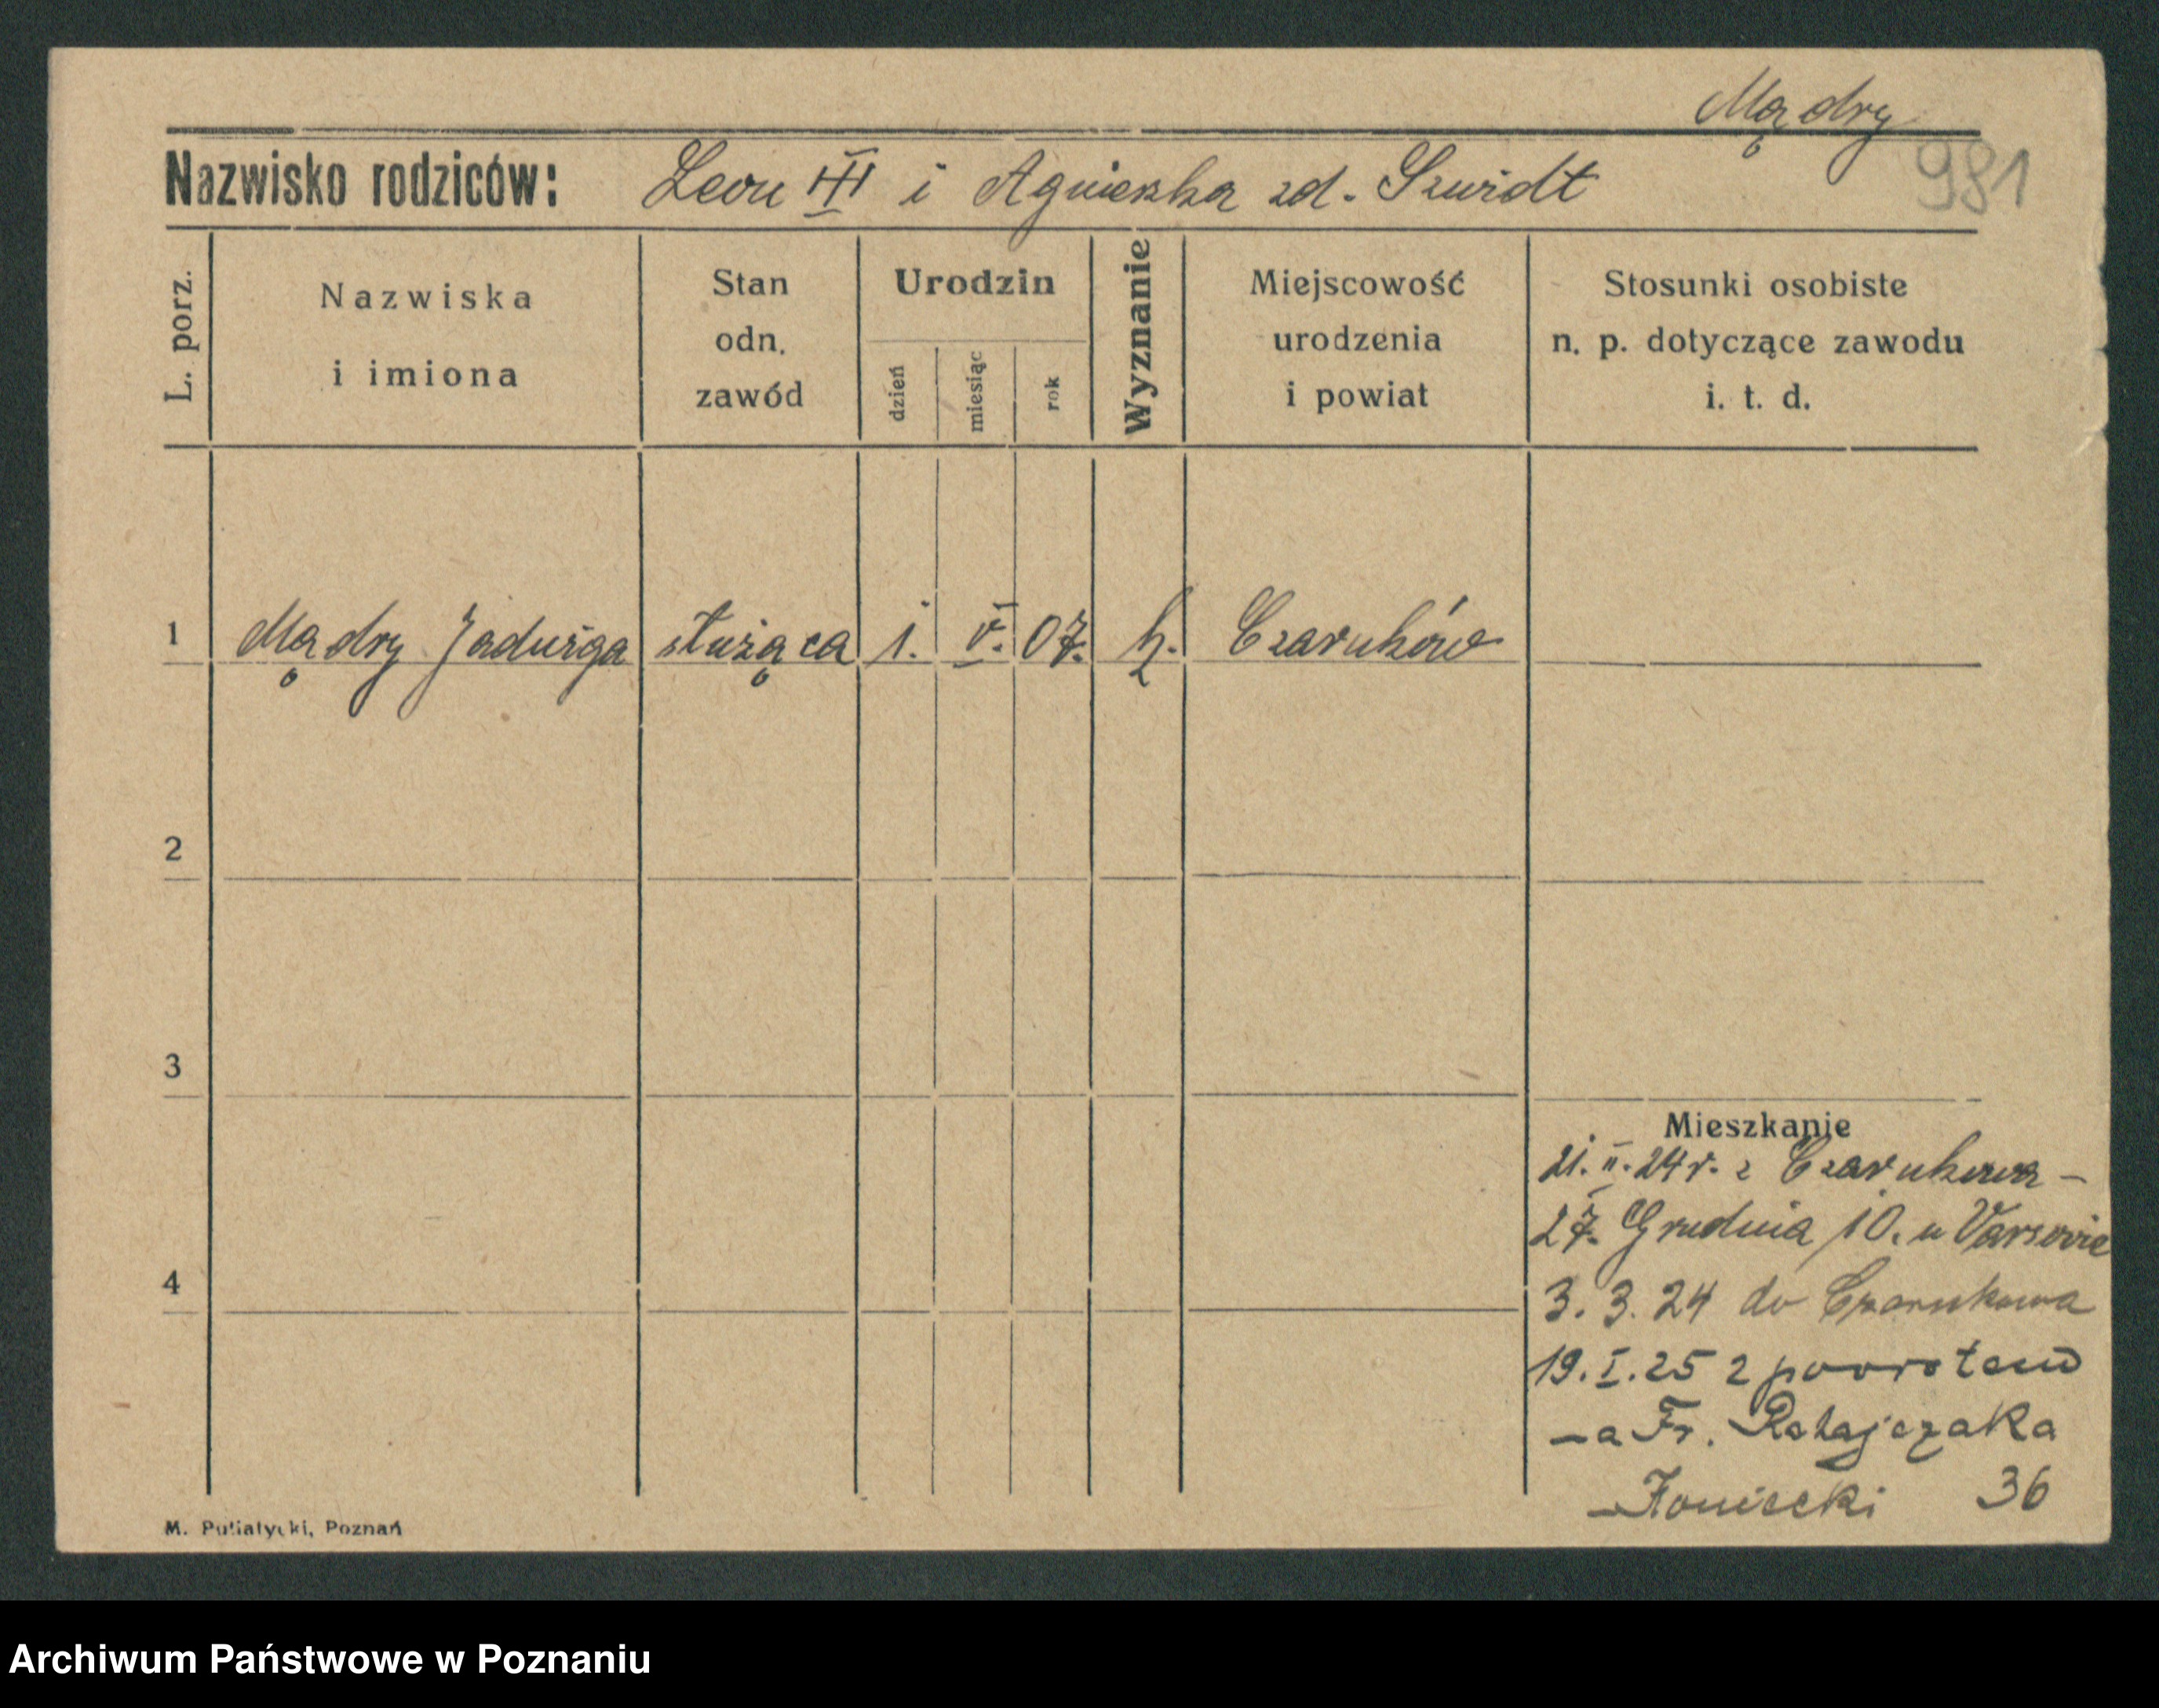 Mądry
981
Nazwisko rodziców: Leon III i Agnieszka zd. Szmidt
L. porz.
Nazwiska
i imiona
Stan
odn.
zawód
Urodzin
dzień
miesiąc
rok
Wyznanie
Miejscowość
urodzenia
i powiat
Stosunki osobiste
n. p. dotyczące zawodu
i. t. d.
1 Mądry Jadwiga służąca 1. V. 07. k. Czarnków
2
3
4
Mieszkanie
21. II. 24 r. z Czarnkowa –
27. Grudnia 10. u Varsovie
3. 3. 24 do Czarnkowa
19. I. 25 z powrotem
– a Fr. Ratajczaka
36
M. Putiatycki, Poznań
Archiwum Państwowe w Poznaniu